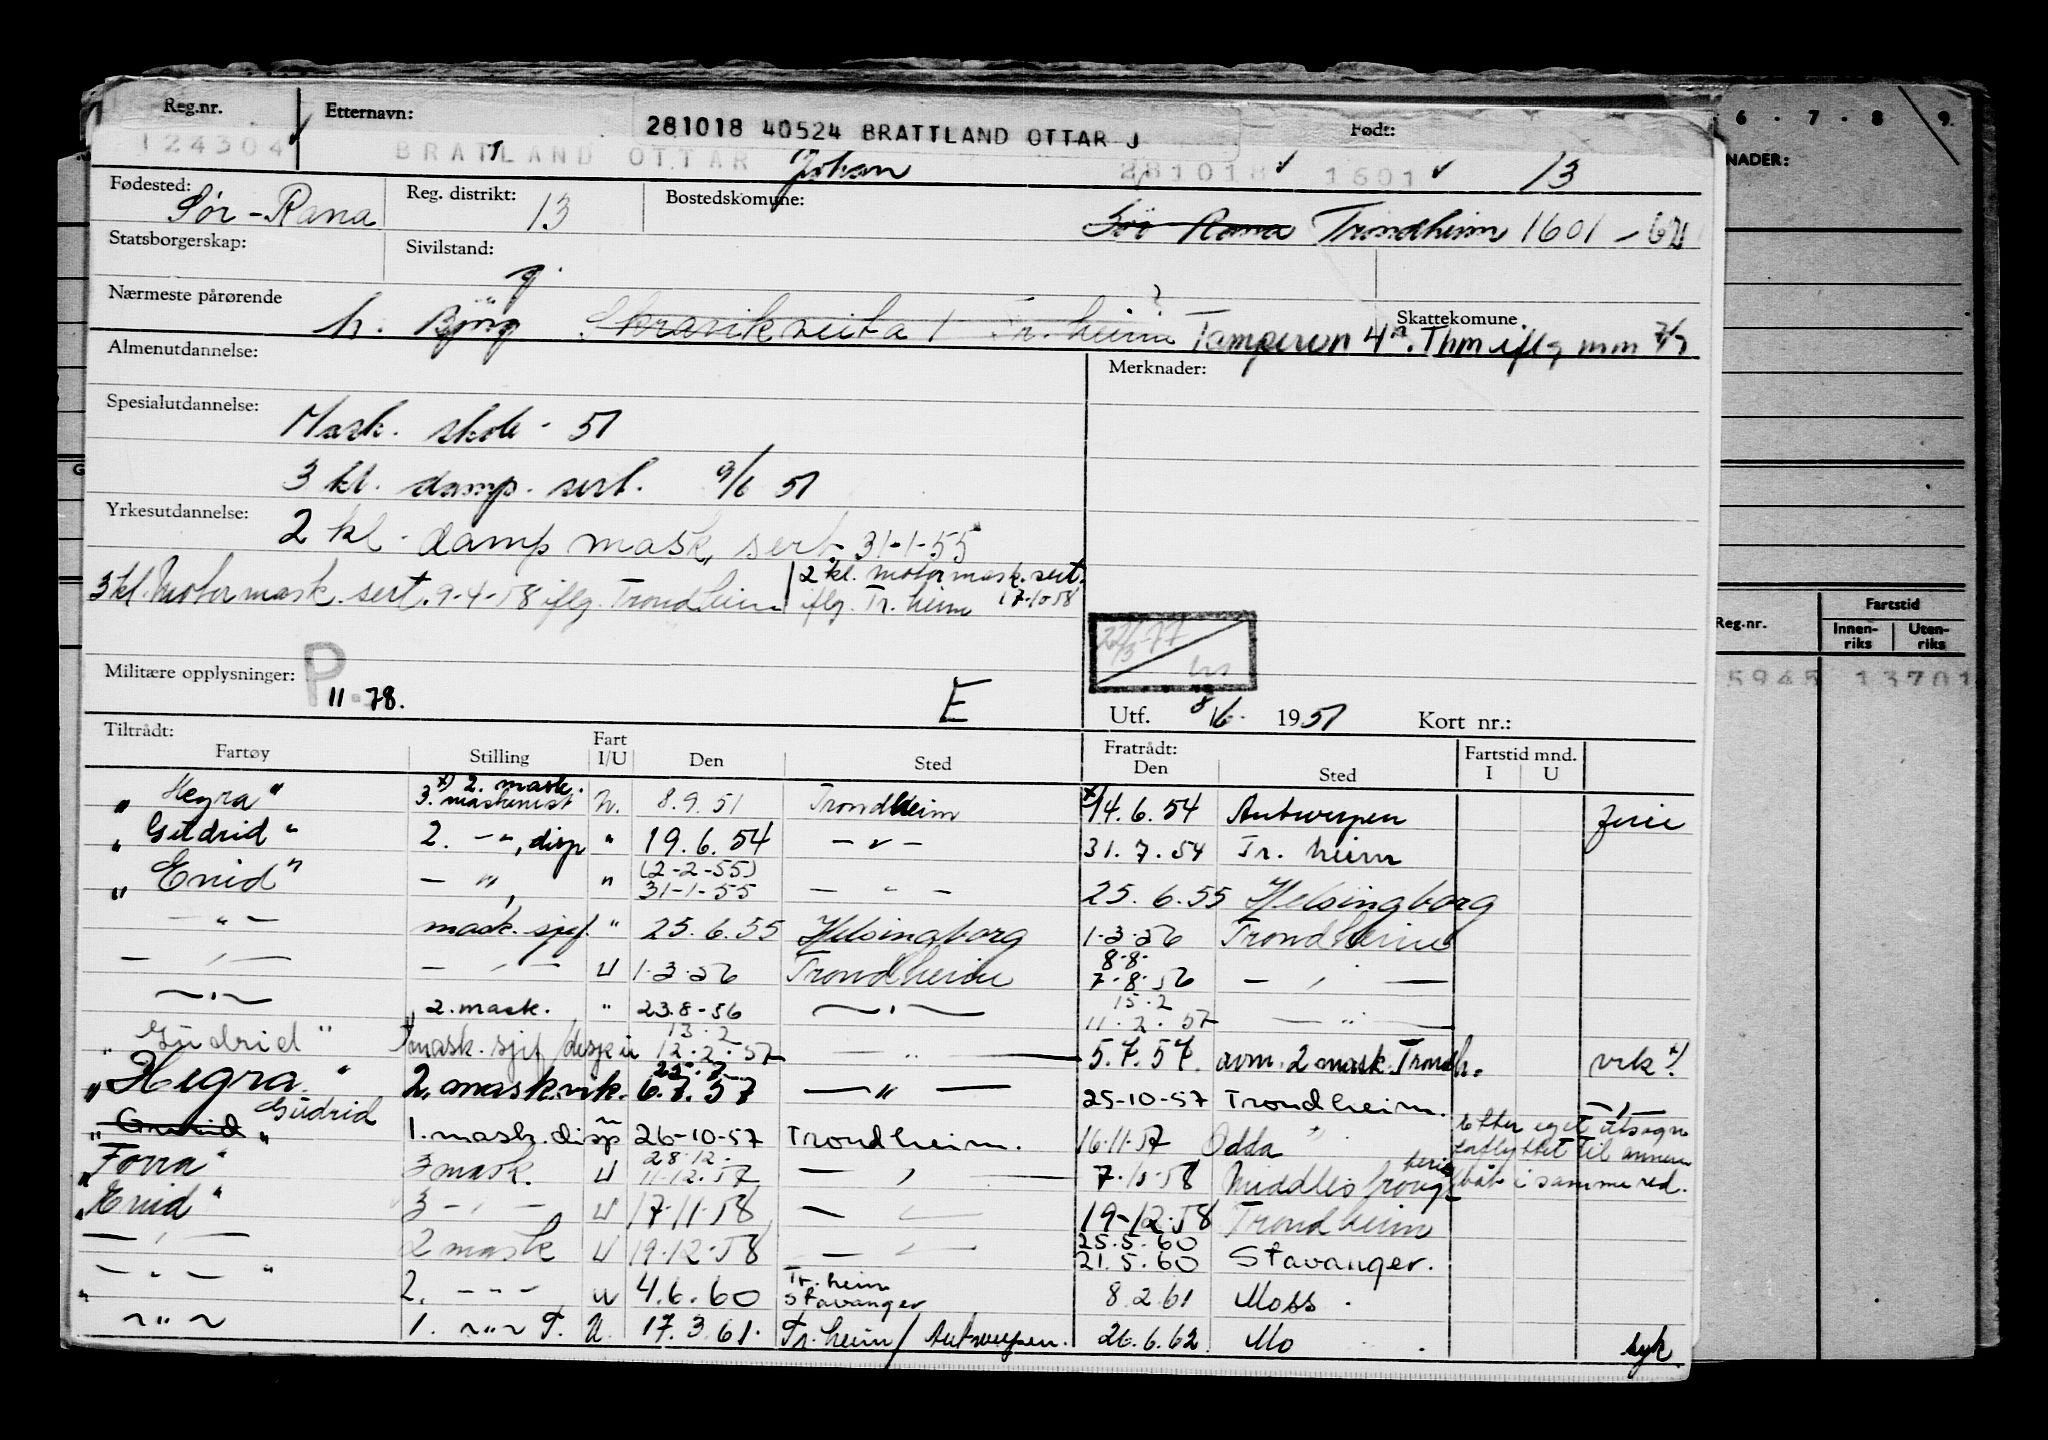 Reg.nr. Etternavn: 281018 40524 BRATTLAND OTTAR J Født: 6 . 7 . 8 9.
124304 BRATTLAND OTTAR Johan 281018 1601 13 NADER:
Fødested: Sør-Rana Reg. distrikt: 13 Bostedskomune: Sör Rana Trondheim 1601
Statsborgerskap: Sivilstand: g.
Nærmeste pårørende h. Björg Tr. heim ? Tampervn 4a. Thm iflg mm Skattekomune.
Almenutdannelse: Merknader:
Spesialutdannelse: Mask. skole - 51
3 kl. damp. sert. 9/6 51
Yrkesutdannelse: 2 kl. damp mask. sert. 31-1-55
3 kl. Motormask. sert. 9-4-58 iflg. Trondheim 2 kl. motormask. sert.
iflg. Tr. heim 17-10 58
22/3-77
Reg.nr. Fartstid
Innen-riks Uten-riks
5945 13701
Militære opplysninger: P 11-78. E
Utf. 8/6- 1951 Kort nr.:
Tiltrådt: Fratrådt:
Fartøy Stilling Fart I/U Den Sted Den Sted Fartstid mnd. I U
" Hegra " x) 2. mask. 3. maskinist U. 8.9.51 Trondheim x) 14.6.54 Antwerpen ferie
" Gudrid " 2. -"-, disp " 19.6.54 - " - 31.7.54 Tr. heim
" Enid " - " - " (2-2-55) 31-1-55 - " - 25.6.55 Helsingborg
- " - mask. sjef. " 25.6.55 Helsingborg 1-3-56 Trondheim
- " - - " - U 1-3-56 Trondheim 8-8- 7-8-56 - " -
- " - 2. mask. " 23.8-56 - " - 15.2 11-2-57 - " -
" Gudrid " mask. sjef 13.2 12-2-57 - " - 5.7.57. avm. 2 mask. Trondh. vik x)
" Hegra " 2. mask.vik. 6.7.57 - " - 25-10-57 Trondheim. - " -
" Gudrid " 1. mask. disp 26-10-57 Trondheim. 16-11-57 Odda " Etter eget utsagn
forflyttet til annen
" Forra " 3 mask. U 28.12. 11-12-57 - " - 7-10-58 Middlesbroug ferie båt i samme red.
" Enid " 3 - " - U 17-11-58 - " - 19-12-58 Trondheim
- " - 2 mask U 19-12-58 - " - 25.5.60 21.5.60 Stavanger.
- " - " 2. - " - U 4.6.60 Tr. heim Stavanger 8.2.61 Moss.
- " - 1. - " - T. U. 17.3.61. Tr. heim / Antwerpen. 26.6.62. Mo syk